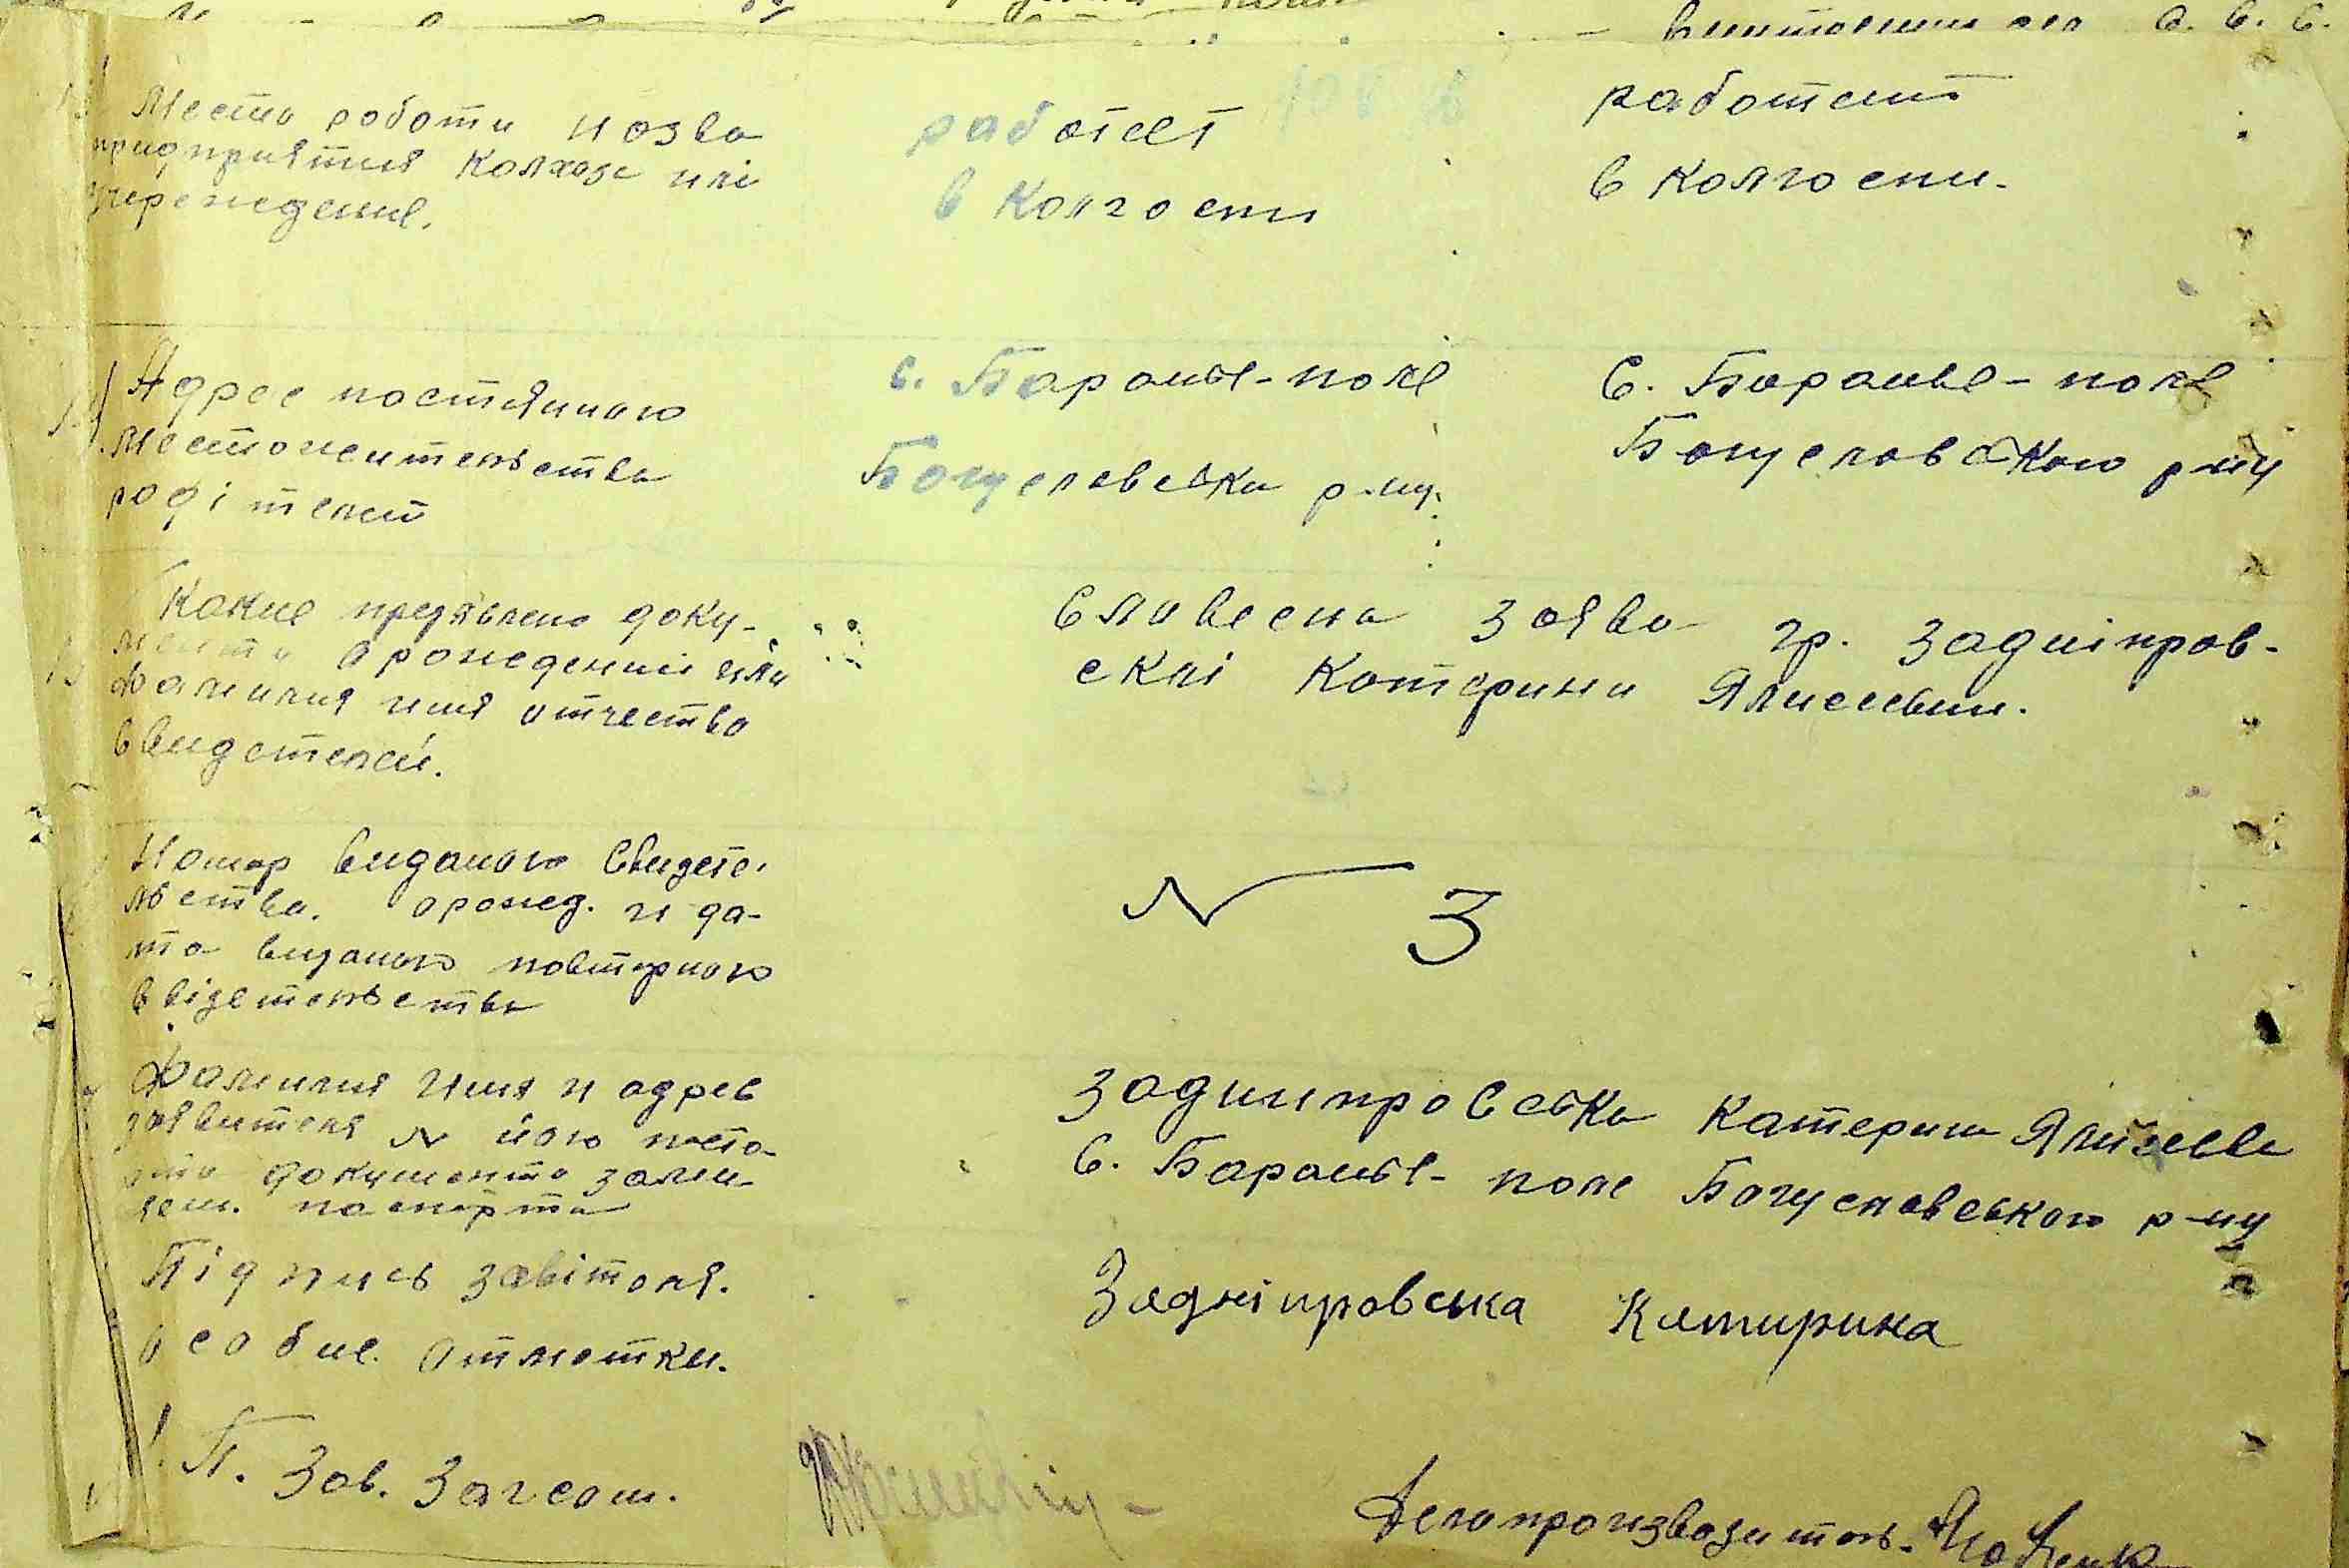 работает
работает
Место роботи назва
придприятия колхоза илі
учереждение.
в колгоспи
в колгоспи.
Адрес постяного
местожительства
родітелей
с. Баранье-поле
Богуславська р-ну.
С. Баранье-поле
Богуславського р-ну
Какие предявлено доку-
менти о рождениі или
фамилия имя отчество
свидетелей.
Славесна заява гр. Задніпров-
скиі Котерини Ялисеевни.
Номер виданого свидете-
льства. о рожд. и да-
та виданого повторного
свідетельства
N 3
Фамилия имя и адрес
заявителя N його
документа заме-
паспорта
Задниправська Катерина Ялисеевна
С. Баранье-поле Богуславського р-ну
Підпись заявітеля.
Задніпровська Катирина
особие. отметки.
П. Зав. Загсом.
Делопроизводитель.